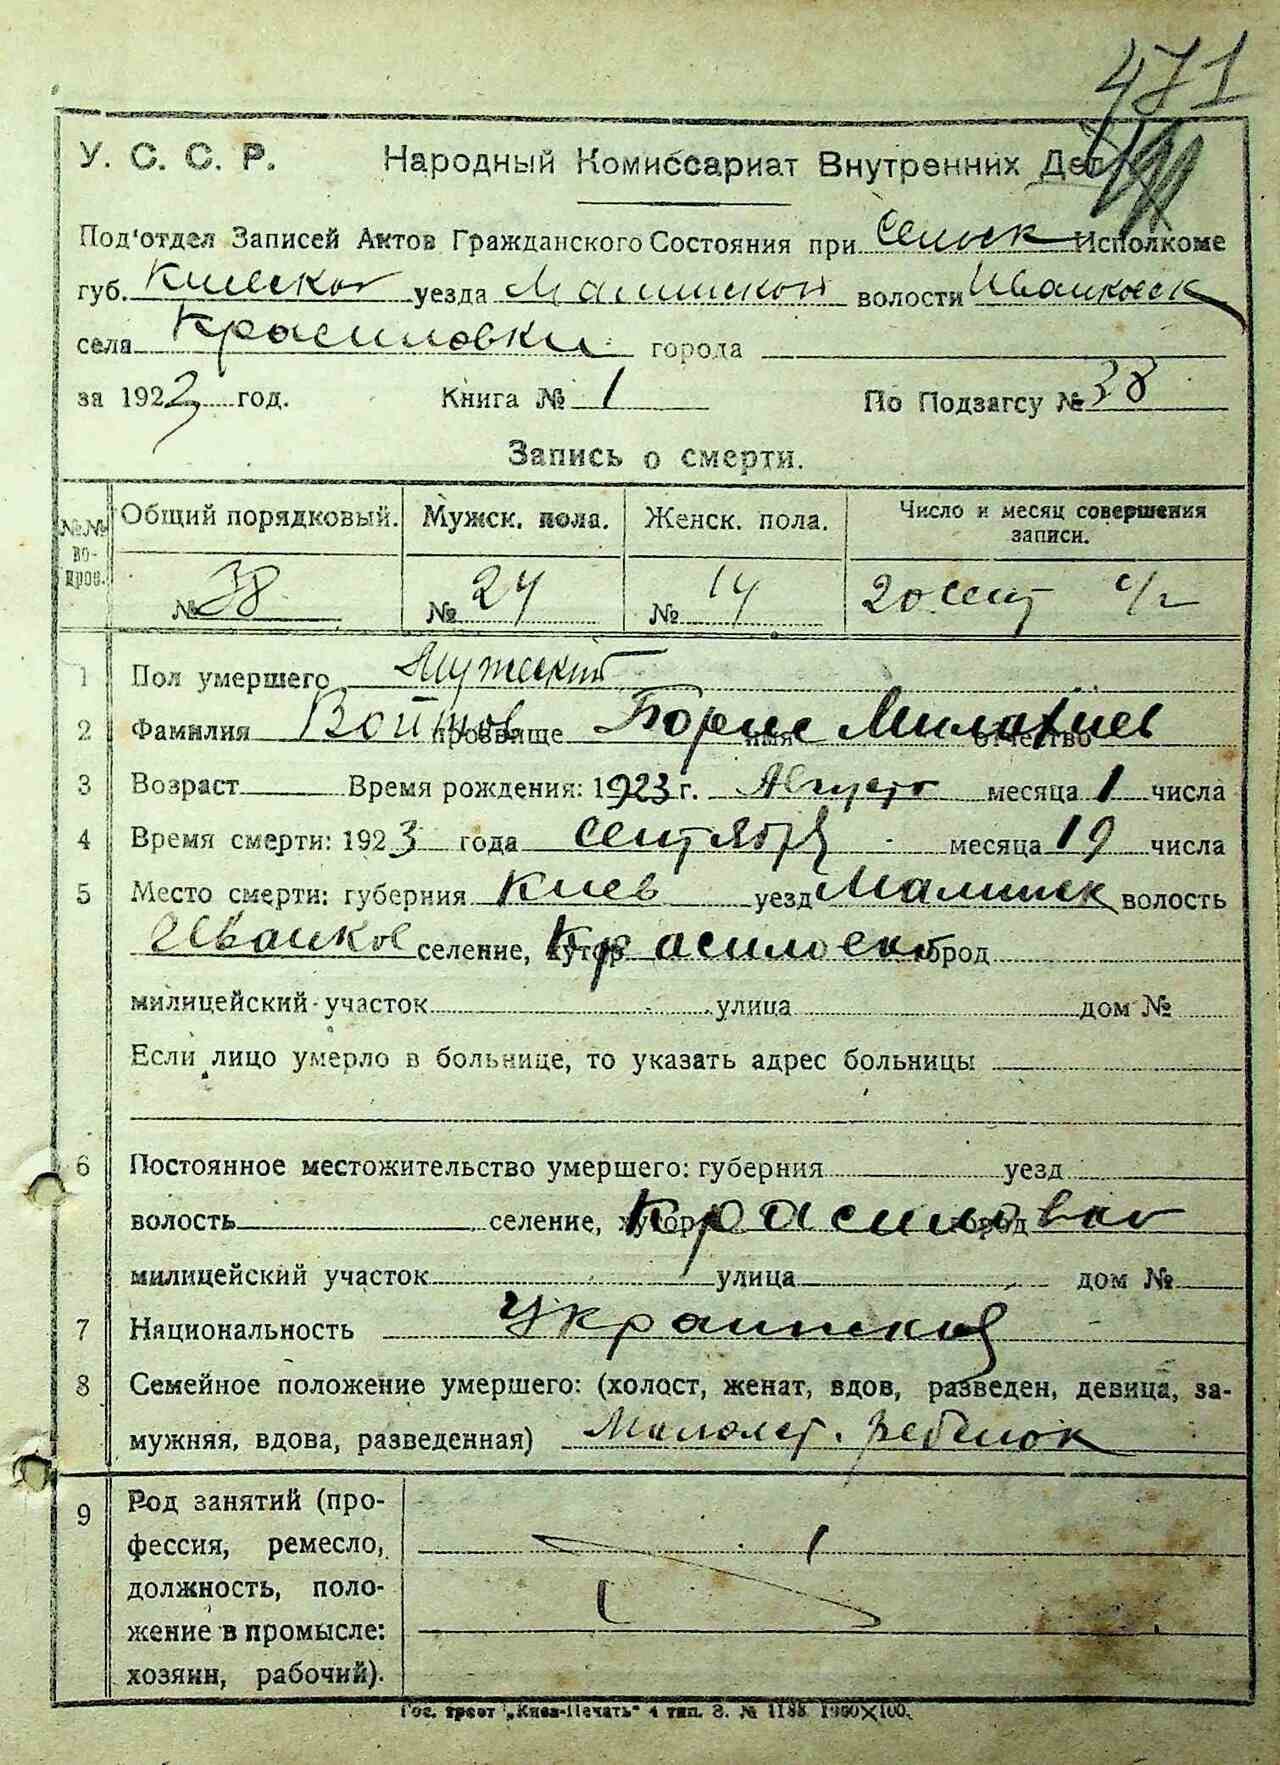 471
У. С. С. Р. Народный Комиссариат Внутренних Дел
Под'отдел Записей Актов Гражданского Состояния при Сельск Исполкоме
губ. Киевской уезда Малинской волости Иванковск
села Красиловки города
за 1923 год. Книга № 1 По Подзагсу № 38
Запись о смерти.
№№ во-прос. Общий порядковый. Мужск. пола. Женск. пола. Число и месяц совершения записи.
№ 38 № 24 № 14 20 сент с/г
1 Пол умершего Мужеский
2 Фамилия Войтов прозвище Борис имя отчество
3 Возраст Время рождения: 1923 г. Августа месяца 1 числа
4 Время смерти: 1923 года сентября месяца 19 числа
5 Место смерти: губерния Киев уезд Малинск волость
Иванков селение, хутор Красиловка город
милицейский участок улица дом №
Если лицо умерло в больнице, то указать адрес больницы
6 Постоянное местожительство умершего: губерния уезд
волость селение, хутор город
милицейский участок улица дом №
7 Национальность
8 Семейное положение умершего: (холост, женат, вдов, разведен, девица, за-
мужняя, вдова, разведенная) Малолет. ребенок
9 Род занятий (про-
фессия, ремесло,
должность, поло-
жение в промысле:
хозяин, рабочий).
Гос. трест „Киев-Печать" 4 тип. З. № 1188 1000×100.